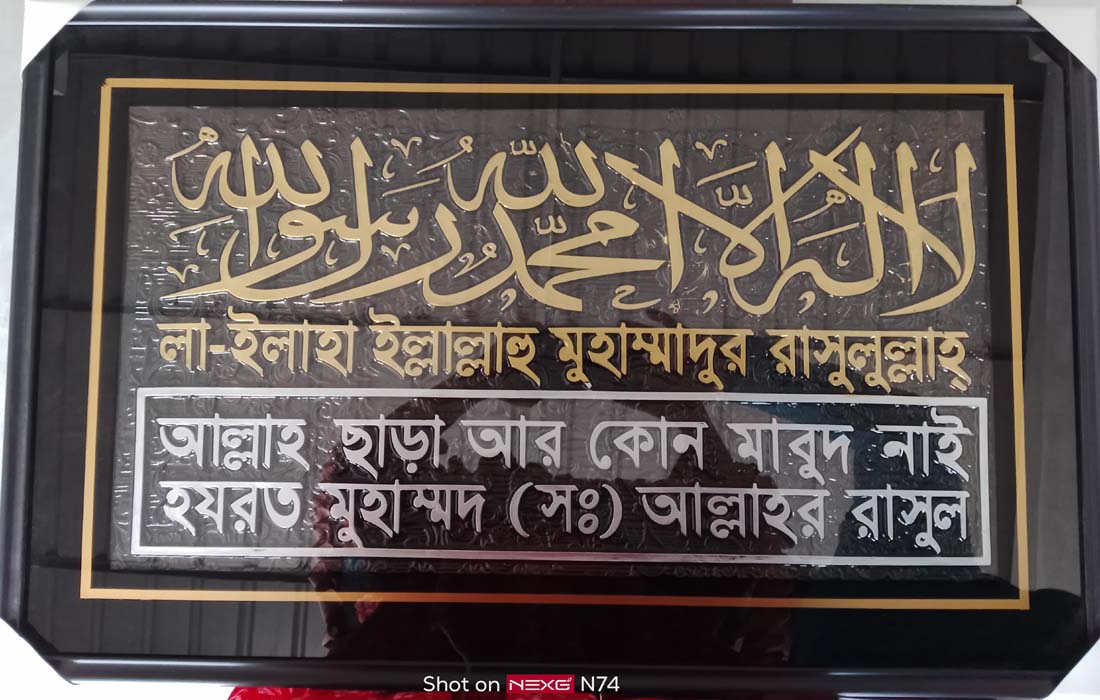 لا إله إلا الله محمد رسول الله
লা-ইলাহা ইল্লাল্লাহু মুহাম্মাদুর রাসুলুল্লাহ্
আল্লাহ ছাড়া আর কোন মাবুদ নাই
হযরত মুহাম্মদ (সঃ) আল্লাহর রাসুল
Shot on NEXG N74